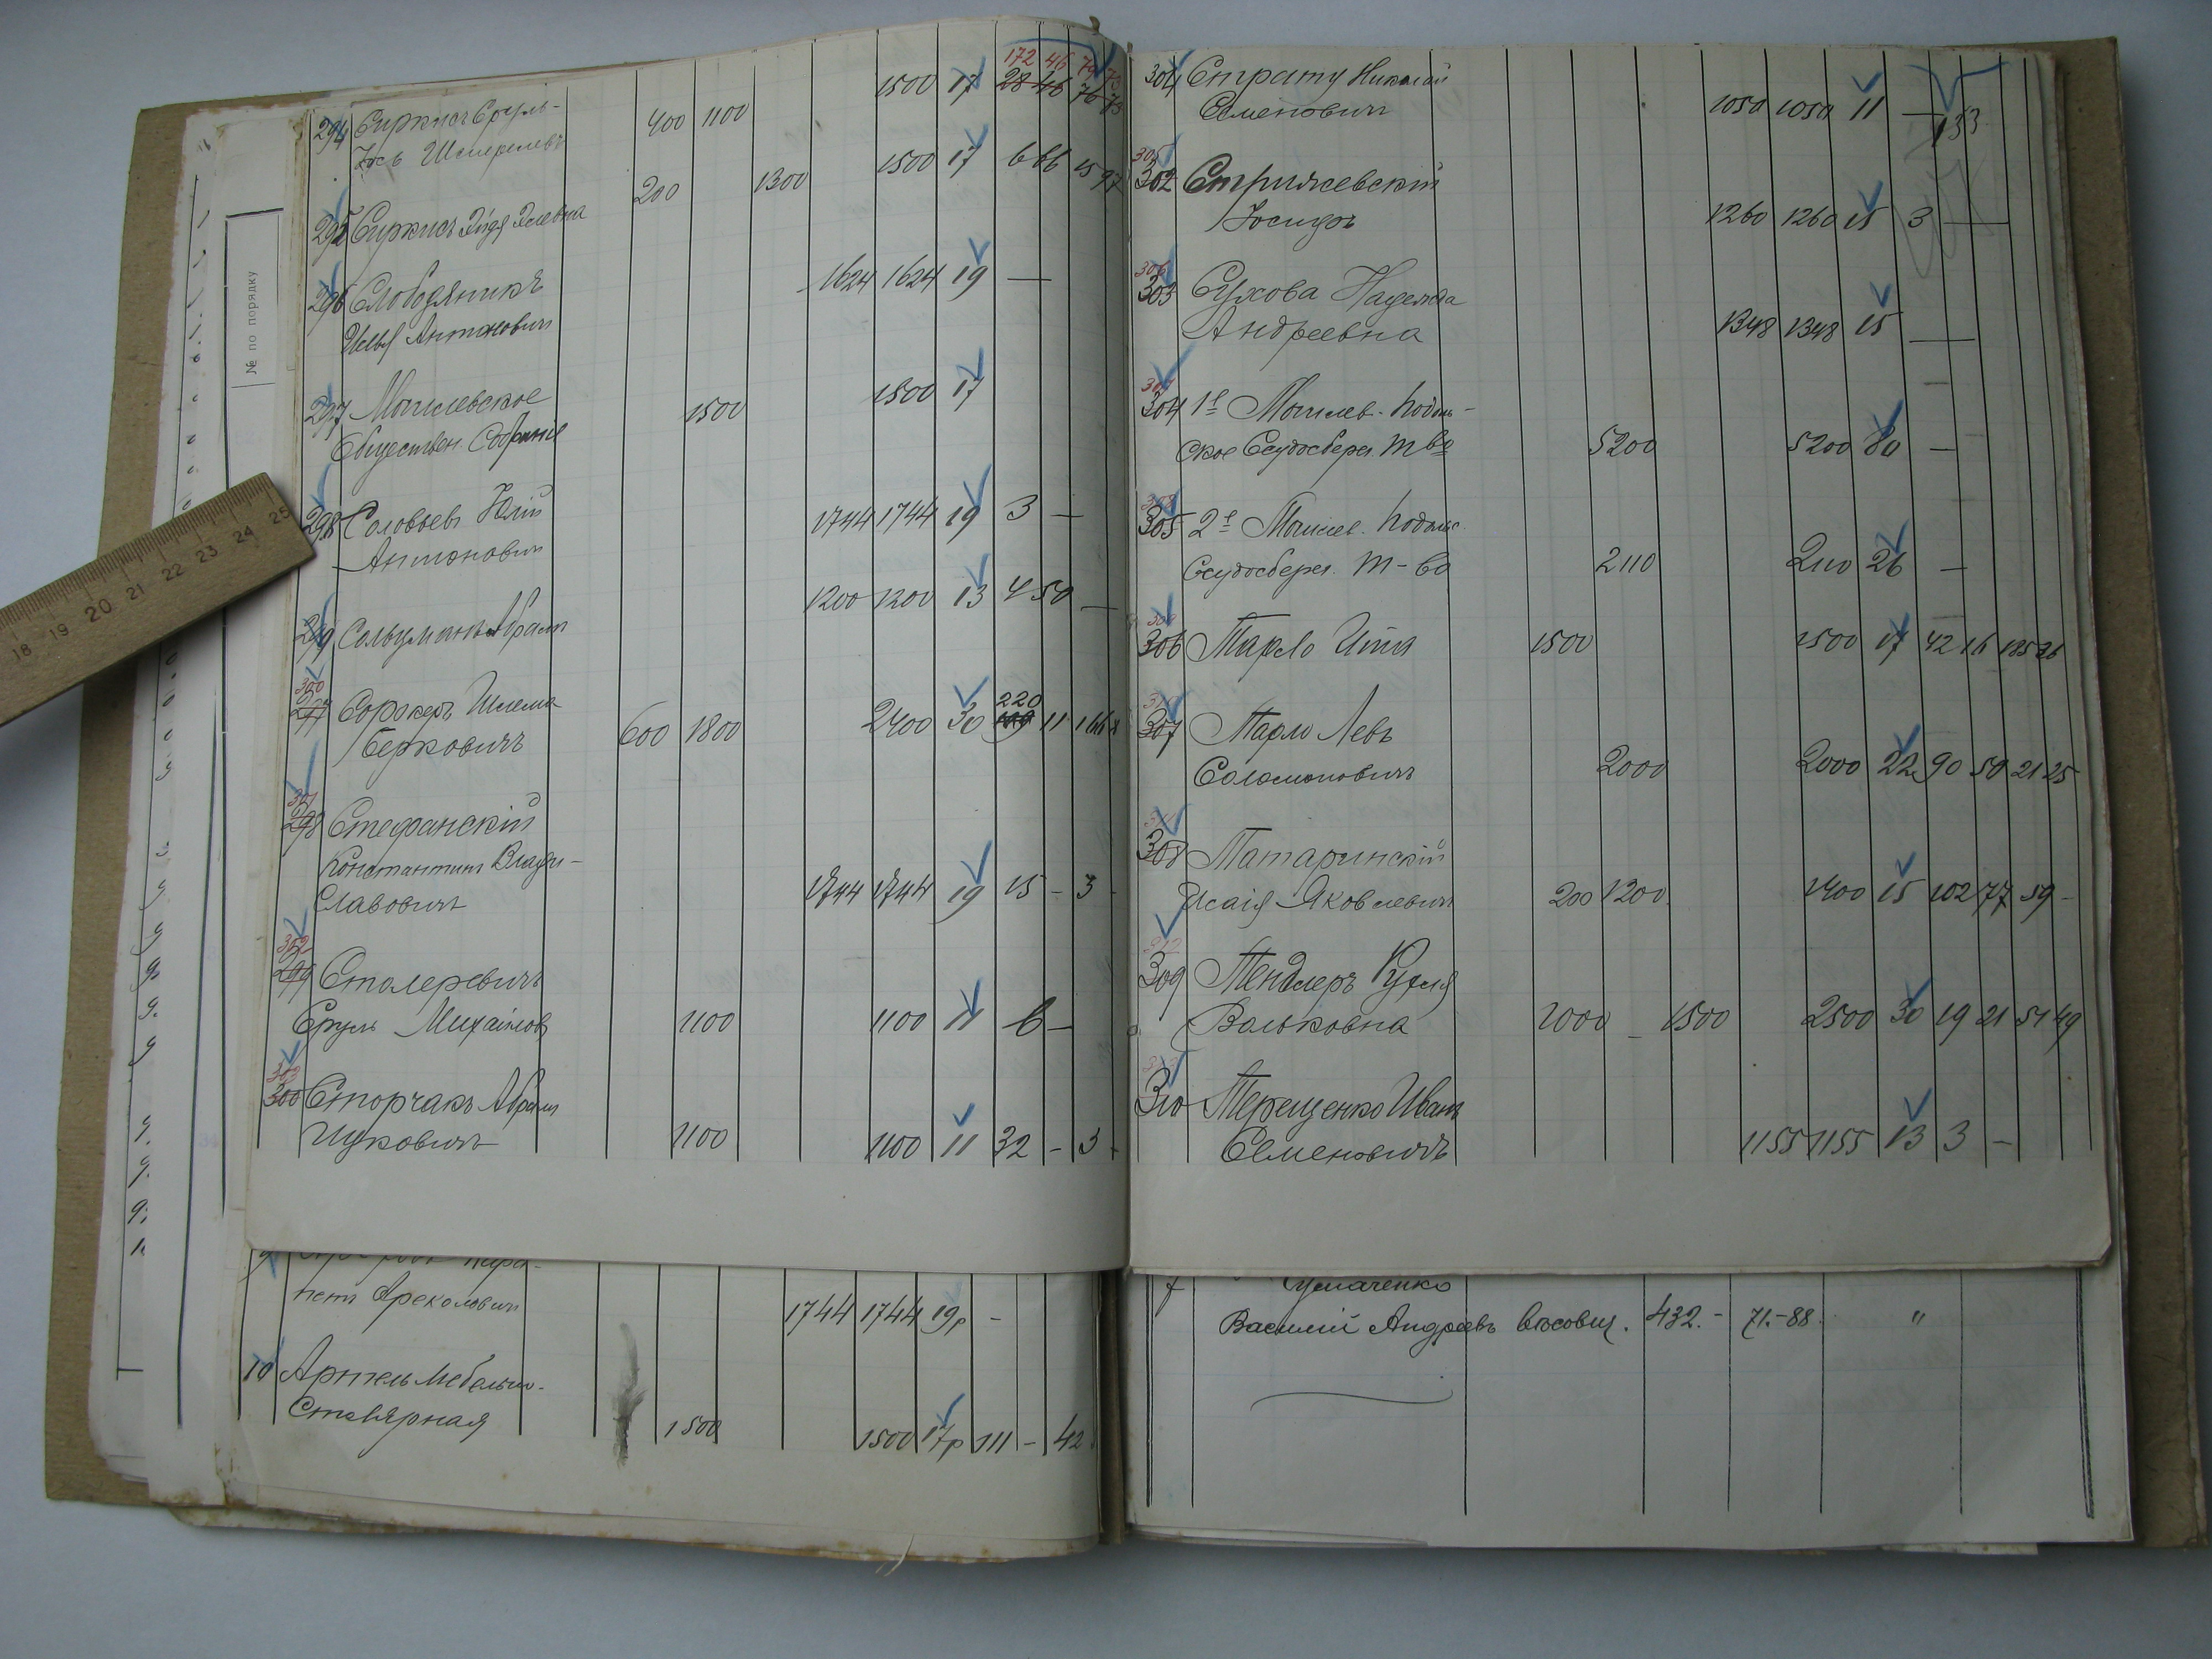 1500 17 172 46 79 73
28 46 76 73
294 Сиркисъ Сруль- 400 1100
Іось Шмерелевъ
1500 17 6 66 15 97
200 1300
295 Сиркисъ
296 Слободяникъ 1624 1624 19 —
Илья Антоновичъ
297 Могилевское 1500 1500 17
Обществен Собранiе
298 Соловьевъ Юлій 1744 1744 19 3 —
Антоновичъ
1200 1200 13 4 50 —
299 Абрамъ
300
297 Сорокеръ Шлема 220
Берковичъ 600 1800 2400 30 199 11 166
301
298 Стефанскій
Константинъ Влади-
славовичъ 1744 1744 19 15 - 3 -
302
299 Столеревичъ
Сруль Михайлов 1100 1100 11 6 —
303
300 Сторчакъ Абрамъ
Ицковичъ 1100 1100 11 32 - 3 -
петъ
1744 1744 19р -
10 Артель Мебельно-
Столярная 1500 1500 17р 111 - 42
№ по порядку
18 19 20 21 22 23 24 25
304 Страту Николай
Семеновичъ 1050 1050 11 — 133
305
302 Стрижевскій
Іосифъ 1260 1260 15 3 —
306
303 Сухова Надежда
Андреевна 1348 1348 15 —
307
304 1е Могилев. Подоль-
ское Ссудосберег. Т-во 5200 5200 80 —
308
305 2е Могилев. Подольс.
Ссудосберег. Т-во 2110 2110 26 —
306 Тарло Ита 1500 1500 17 42 16 185 26
307 Тарло Левъ
Соломоновичъ 2000 2000 22 90 50 21 25
308 Татаринскій
Исаія Яковлевичъ 200 1200 1400 15 102 77 59 -
312
309 Тендлеръ Рухля
Вольковна 1000 - 1500 2500 30 19 21 51 49
310 Терещенко Иванъ
Семеновичъ 1155 1155 13 3 -
Василій Андреевъ 432.- 71.-88. "